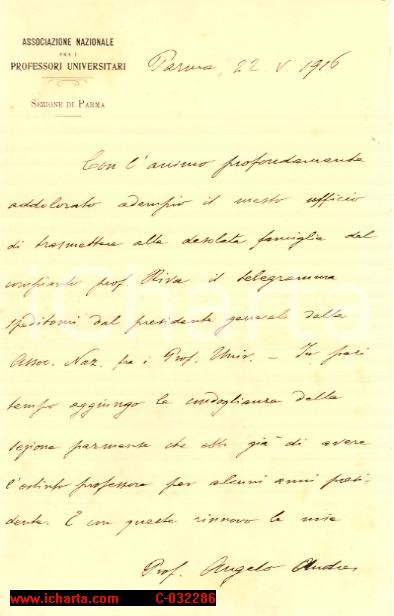 ASSOCIAZIONE NAZIONALE
FRA I
PROFESSORI UNIVERSITARI
SEZIONE DI PARMA
Parma, 22 V. 1916
Con l'animo profondamente
addolorato adempio il mesto ufficio
di trasmettere alla desolata famiglia del
compianto prof. Riva il telegramma
speditomi dal presidente generale della
Assoc. Naz. fra i Prof. Univ. — In pari
tempo aggiungo le condoglianze della
sezione parmense che ebbe già di avere
l'estinto professore per alcuni anni presi-
dente. E con queste rinnovo le mie
Prof. Angelo Andres
iCharta
www.icharta.com C-032286